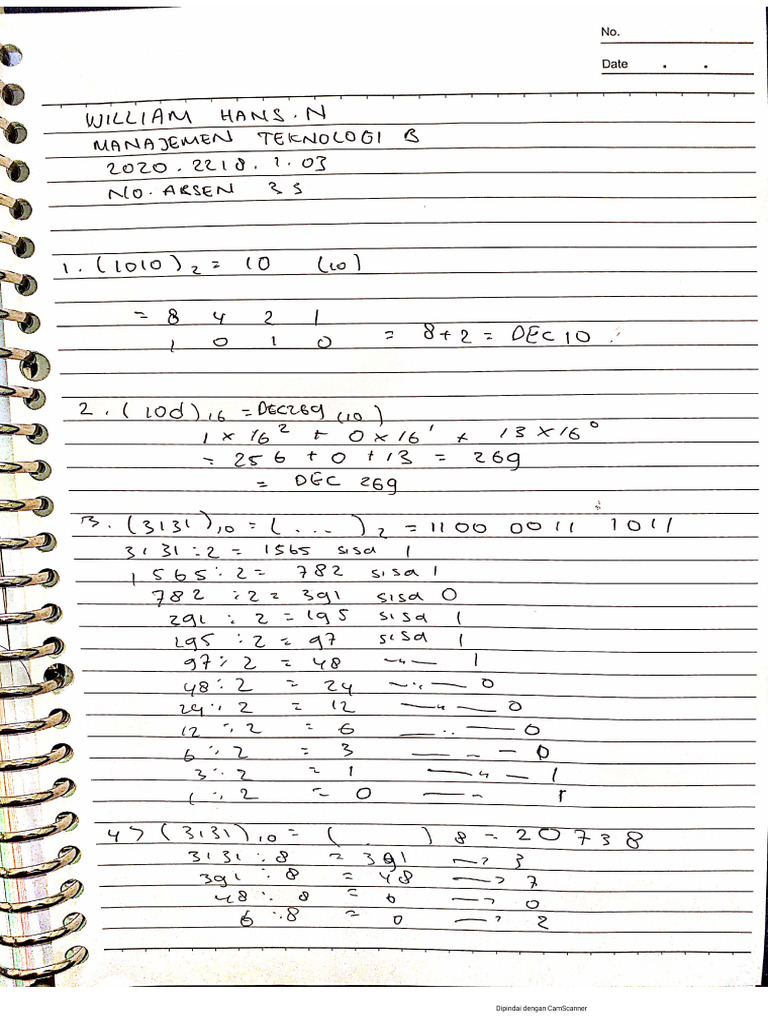 No.
Date . .
WILLIAM HANS.N
MANAJEMEN TEKNOLOGI B
2020.2218.1.03
NO. ABSEN 35
1. (1010)2 = 10 (10)
= 8 4 2 1
1 0 1 0 = 8+2 = DEC 10
2. (10d)16 = DEC269 (10)
1 × 16² + 0 × 16¹ + 13 × 16⁰
= 256 + 0 + 13 = 269
= DEC 269
3. (3131)10 = (...)2 = 1100 0011 1011
3131 : 2 = 1565 sisa 1
1565 : 2 = 782 sisa 1
782 : 2 = 391 sisa 0
291 : 2 = 195 sisa 1
195 : 2 = 97 sisa 1
97 : 2 = 48 —〃— 1
48 : 2 = 24 —〃— 0
24 : 2 = 12 —〃— 0
12 : 2 = 6 —〃— 0
6 : 2 = 3 —〃— 0
3 : 2 = 1 —〃— 1
1 : 2 = 0 —〃 1
4> (3131)10 = ( )8 = 20738
3131 : 8 = 391 —> 3
391 : 8 = 48 —> 7
48 : 8 = 6 —> 0
6 : 8 = 0 —> 2
Dipindai dengan CamScanner